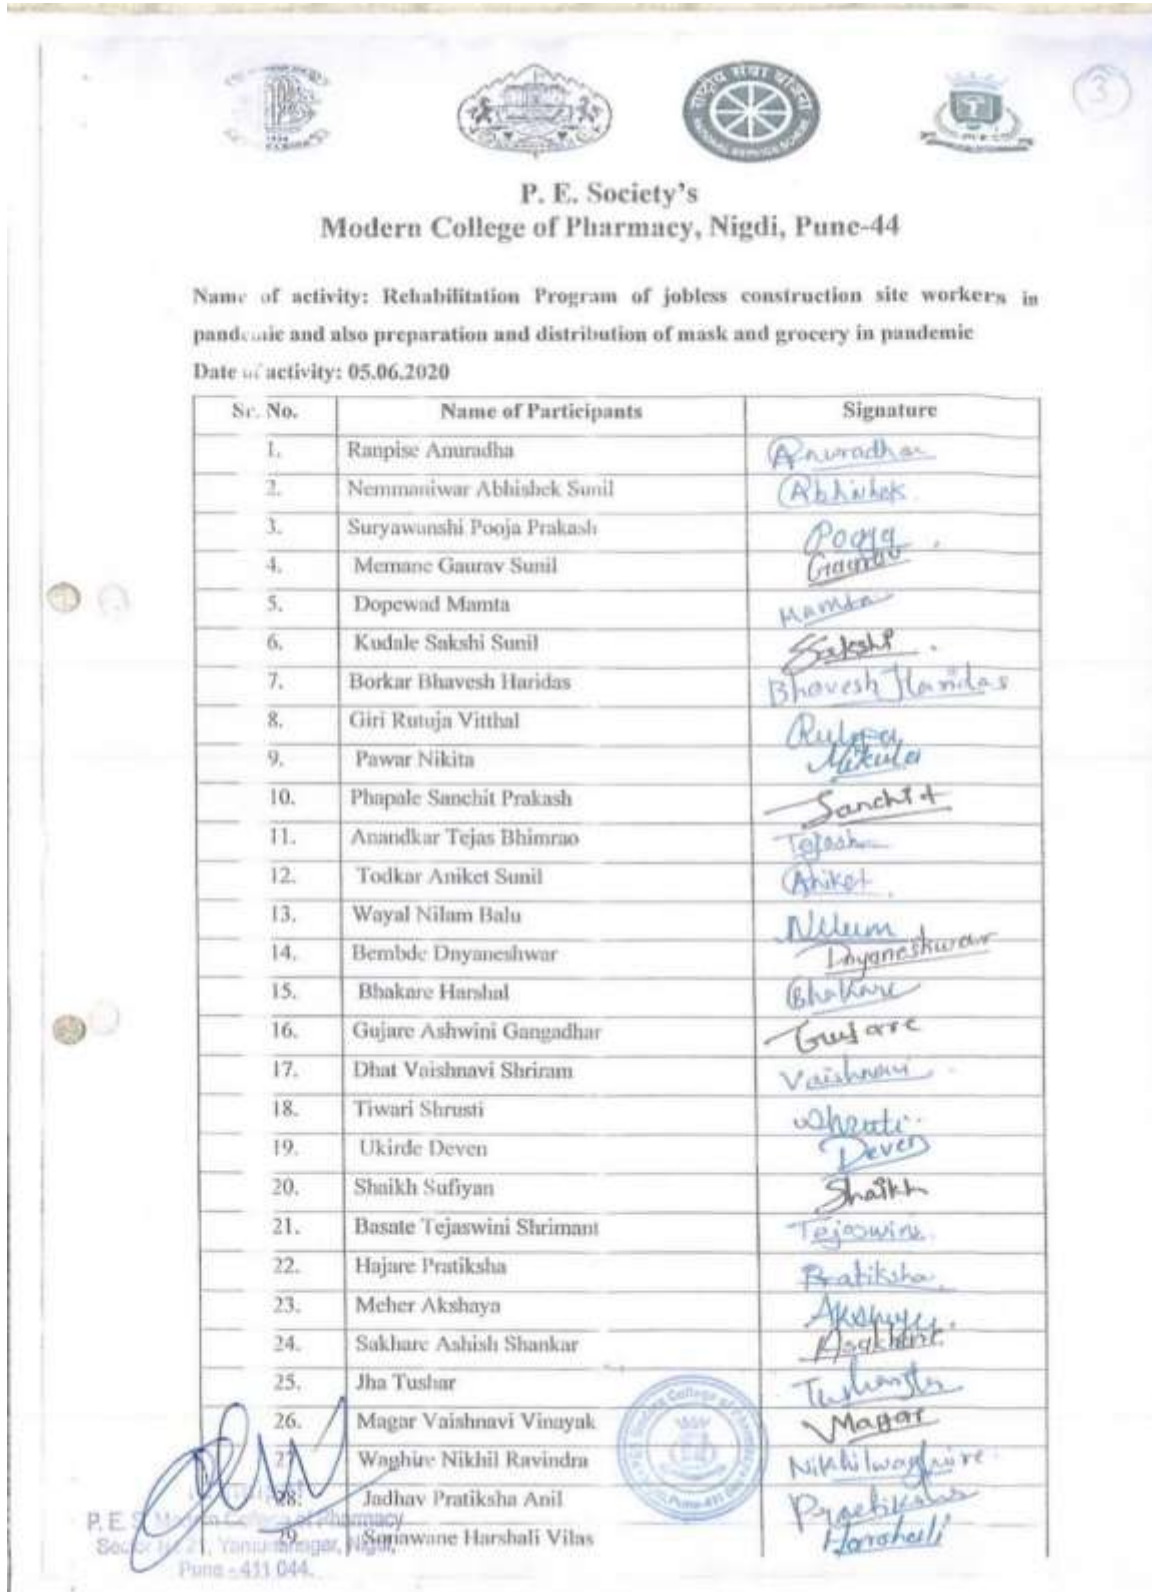 3
राष्ट्रीय सेवा योजना
NATIONAL SERVICE SCHEME
P. E. Society's
Modern College of Pharmacy, Nigdi, Pune-44
Name of activity: Rehabilitation Program of jobless construction site workers in
pandemic and also preparation and distribution of mask and grocery in pandemic
Date of activity: 05.06.2020
Sr. No. Name of Participants Signature
1. Ranpise Anuradha Anuradha
2. Nemmaniwar Abhishek Sunil Abhishek
3. Suryawanshi Pooja Prakash Pooja
4. Memane Gaurav Sunil Gaurav
5. Dopewad Mamta Mamta
6. Kudale Sakshi Sunil Sakshi
7. Borkar Bhavesh Haridas Bhavesh Haridas
8. Giri Rutuja Vitthal
9. Pawar Nikita
10. Phapale Sanchit Prakash Sanchit
11. Anandkar Tejas Bhimrao Tejash
12. Todkar Aniket Sunil Aniket
13. Wayal Nilam Balu Nilum
14. Bembde Dnyaneshwar Dnyaneshwar
15. Bhakare Harshal Bhakare
16. Gujare Ashwini Gangadhar Gujare
17. Dhat Vaishnavi Shriram Vaishnavi
18. Tiwari Shrusti
19. Ukirde Deven Deven
20. Shaikh Sufiyan Shaikh
21. Basate Tejaswini Shrimant Tejaswini
22. Hajare Pratiksha Pratiksha
23. Meher Akshaya
24. Sakhare Ashish Shankar
25. Jha Tushar
26. Magar Vaishnavi Vinayak Magar
27. Waghire Nikhil Ravindra Nikhilwaghire
28. Jadhav Pratiksha Anil
29. Sonawane Harshali Vilas Harshali
P. E. S. Modern College of Pharmacy
Sector No 21, Yamunanagar, Nigdi,
Pune - 411 044.